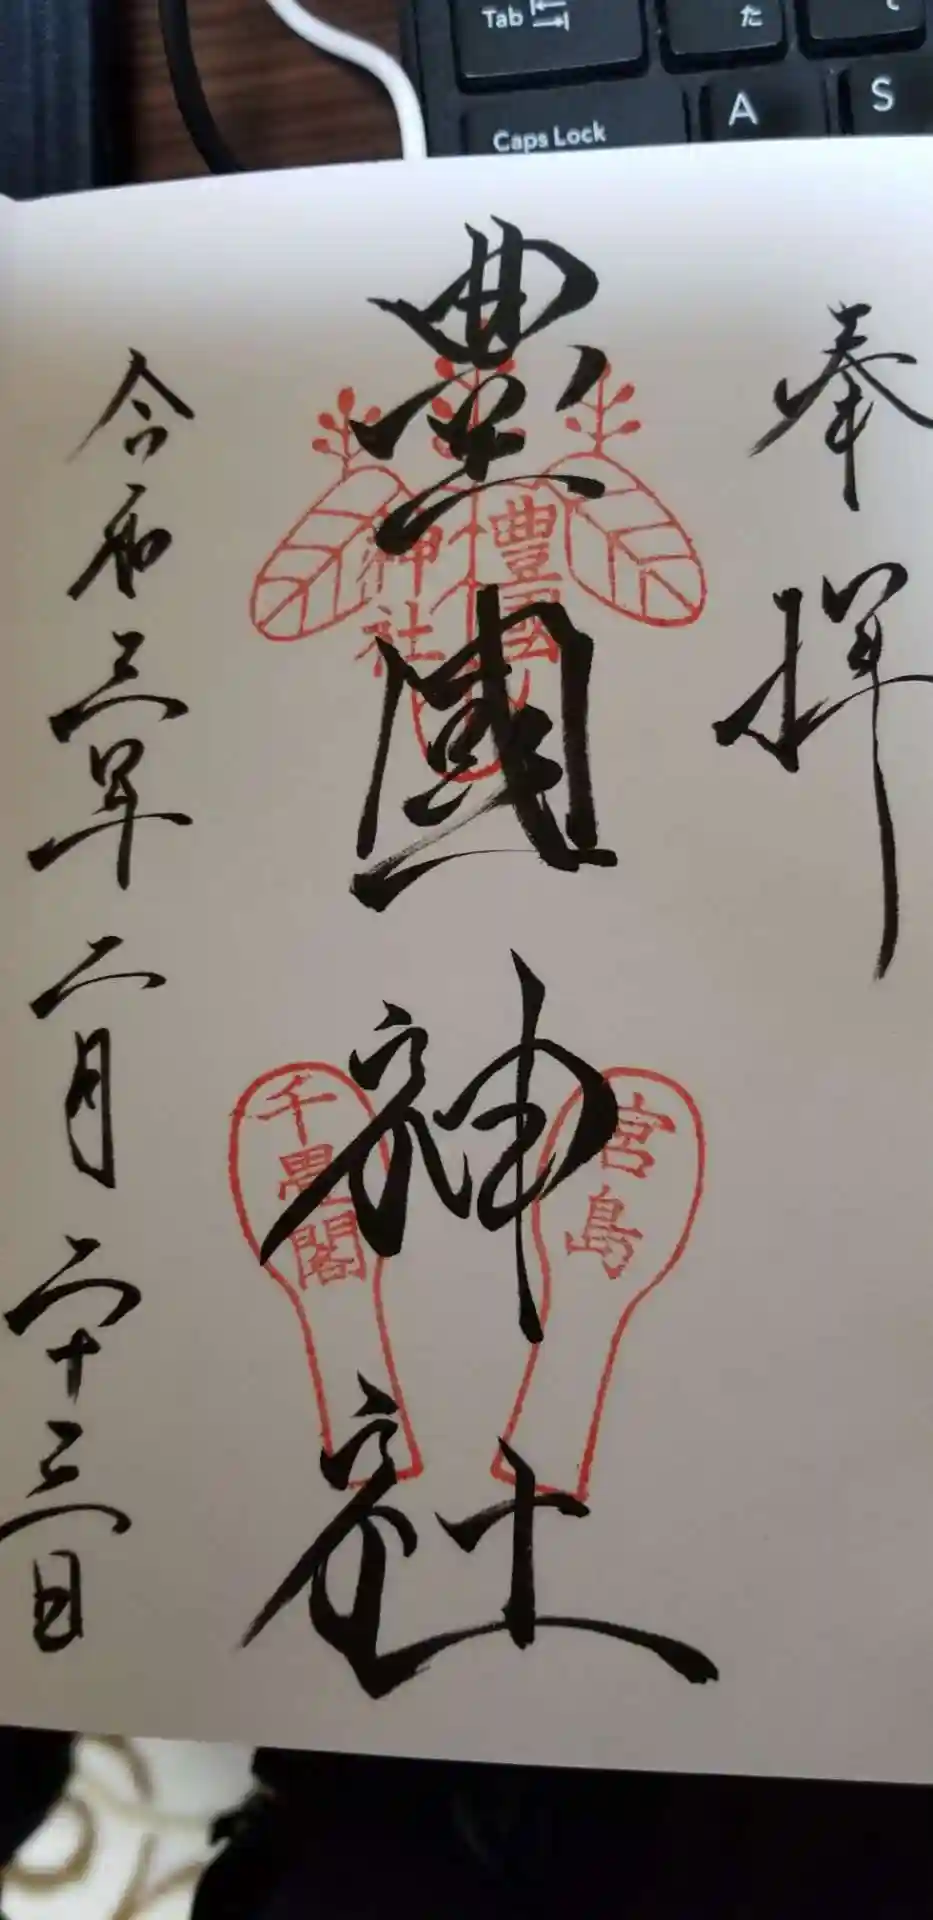 Tab
た
Caps Lock
A
S
奉拝
豊國神社
豊國
神社
宮島
千畳閣
令和三年二月二十三日